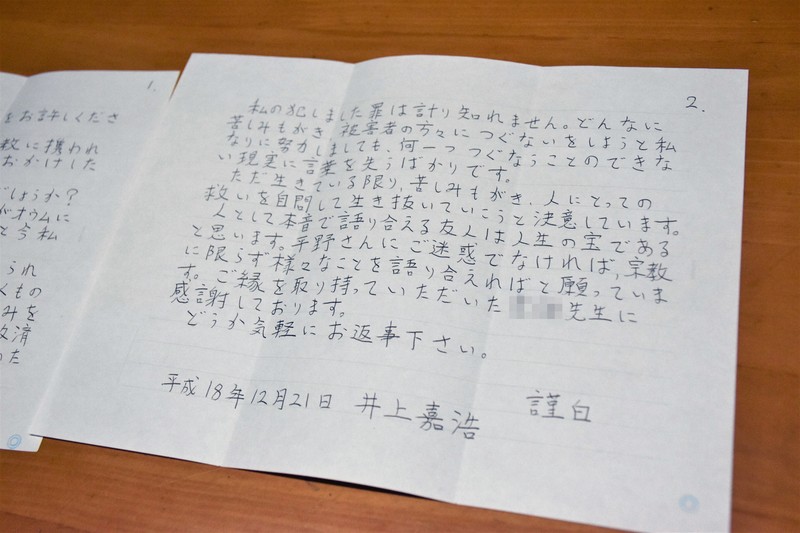 1.
をお許しくださ
教に携われ
おかけした
でしょうか？
がオウムに
と今私
られ
くもの
みを
救済
った
2.
私の犯しました罪は計り知れません。どんなに
苦しみもがき被害者の方々につぐないをしようと私
なりに努力しましても、何一つつぐなうことのできな
い現実に言葉を失うばかりです。
ただ生きている限り、苦しみもがき、人にとっての
救いを自問して生き抜いていこうと決意しています。
人として本音で語り合える友人は人生の宝である
と思います。平野さんにご迷惑でなければ、宗教
に限らず様々なことを語り合えればと願っていま
す。ご縁を取り持っていただいた 先生に
感謝しております。
どうか気軽にお返事下さい。
平成18年12月21日 井上嘉浩 謹白